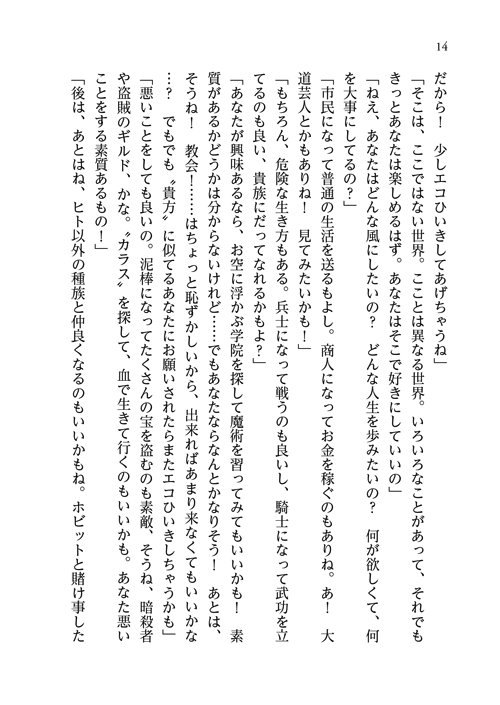 14
だから！　少しエコひいきしてあげちゃうね」
「そこは、ここではない世界。こことは異なる世界。いろいろなことがあって、それでも
きっとあなたは楽しめるはず。あなたはそこで好きにしていいの」
「ねえ、あなたはどんな風にしたいの？　どんな人生を歩みたいの？　何が欲しくて、何
を大事にしてるの？」
「市民になって普通の生活を送るもよし。商人になってお金を稼ぐのもありね。あ！　大
道芸人とかもありね！　見てみたいかも！」
「もちろん、危険な生き方もある。兵士になって戦うのも良いし、騎士になって武功を立
てるのも良い、貴族にだってなれるかもよ？」
「あなたが興味あるなら、お空に浮かぶ学院を探して魔術を習ってみてもいいかも！　素
質があるかどうかは分からないけれど……でもあなたならなんとかなりそう！　あとは、
そうね！　教会！……はちょっと恥ずかしいから、出来ればあまり来なくてもいいかな
…？　でもでも〝貴方〟に似てるあなたにお願いされたらまたエコひいきしちゃうかも」
「悪いことをしても良いの。泥棒になってたくさんの宝を盗むのも素敵、そうね、暗殺者
や盗賊のギルド、かな。〝カラス〟を探して、血で生きて行くのもいいかも。あなた悪い
ことをする素質あるもの！」
「後は、あとはね、ヒト以外の種族と仲良くなるのもいいかもね。ホビットと賭け事した